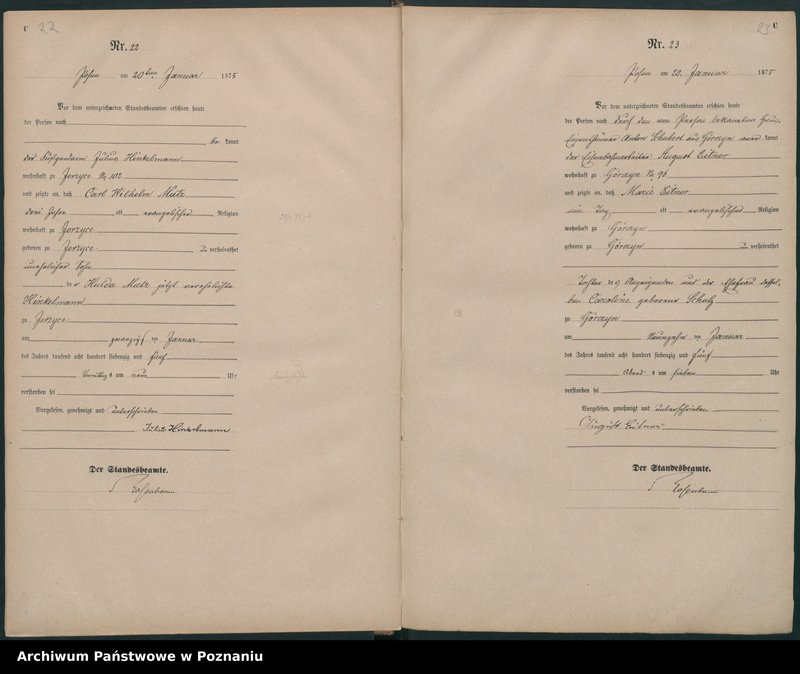 C 22
Nr. 22
Posen am 20ten Januar 1875
Vor dem unterzeichneten Standesbeamten erschien heute
der Person nach
be kannt
der Fußgendarm Julius Hinkelmann
wohnhaft zu Jerzyce No 102
und zeigte an, daß Carl Wilhelm Mutz
drei Jahre alt evangelischer Religion
wohnhaft zu Jerzyce
geboren zu Jerzyce un verheirathet
unehelicher Sohn
der Hulda Mutz jetzt verehelichte
Hinkelmann
zu Jerzyce
am zwanzigsten Januar
des Jahres tausend acht hundert siebenzig und fünf
Vormittags um neun Uhr
verstorben sei
Vorgelesen, genehmigt und unterschrieben
Hinkelmann
Der Standesbeamte.
23 C
Nr. 23
Posen am 20. Januar 1875
Vor dem unterzeichneten Standesbeamten erschien heute
der Person nach durch den von Person bekannten
Eigenthümer Anton Schubert aus Górczyn aner kannt
der Eisenbahnarbeiter August Eitner
wohnhaft zu Górczyn No 96
und zeigte an, daß Marie Eitner
ein Tag alt evangelischer Religion
wohnhaft zu Górczyn
geboren zu Górczyn un verheirathet
Tochter des Anzeigenden und der Ehefrau dessel-
ben Caroline geborene Schulz
zu Górczyn
am Neunzehn ten Januar
des Jahres tausend acht hundert siebenzig und fünf
Abend s um sieben Uhr
verstorben sei
Vorgelesen, genehmigt und unterschrieben
August Eitner
Der Standesbeamte.
Archiwum Państwowe w Poznaniu